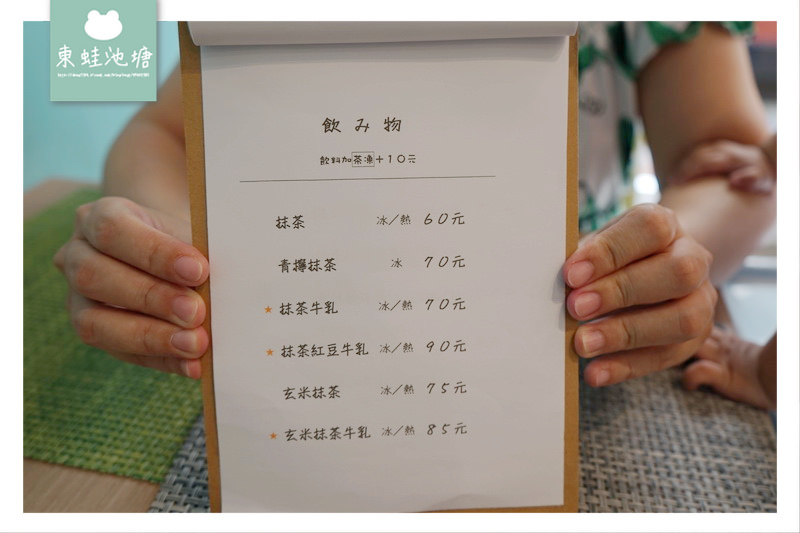 東蛙池塘
飲み物
飲料加茶凍+10元
抹茶 冰/熱 60元
青檸抹茶 冰 70元
★ 抹茶牛乳 冰/熱 70元
★ 抹茶紅豆牛乳 冰/熱 90元
玄米抹茶 冰/熱 75元
★ 玄米抹茶牛乳 冰/熱 85元